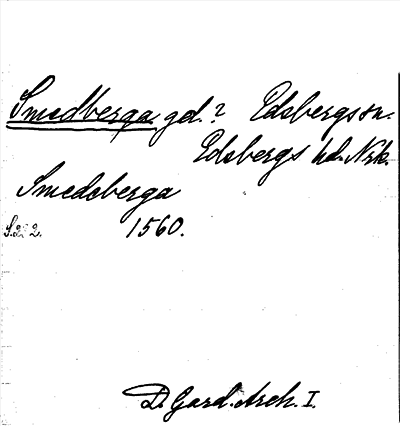 Smedberga gd.? Edsbergs sn.
Edsbergs hd. Nrk.
Smedeberga
S. 2: 2. 1560.
D. Gard. Arch. I.